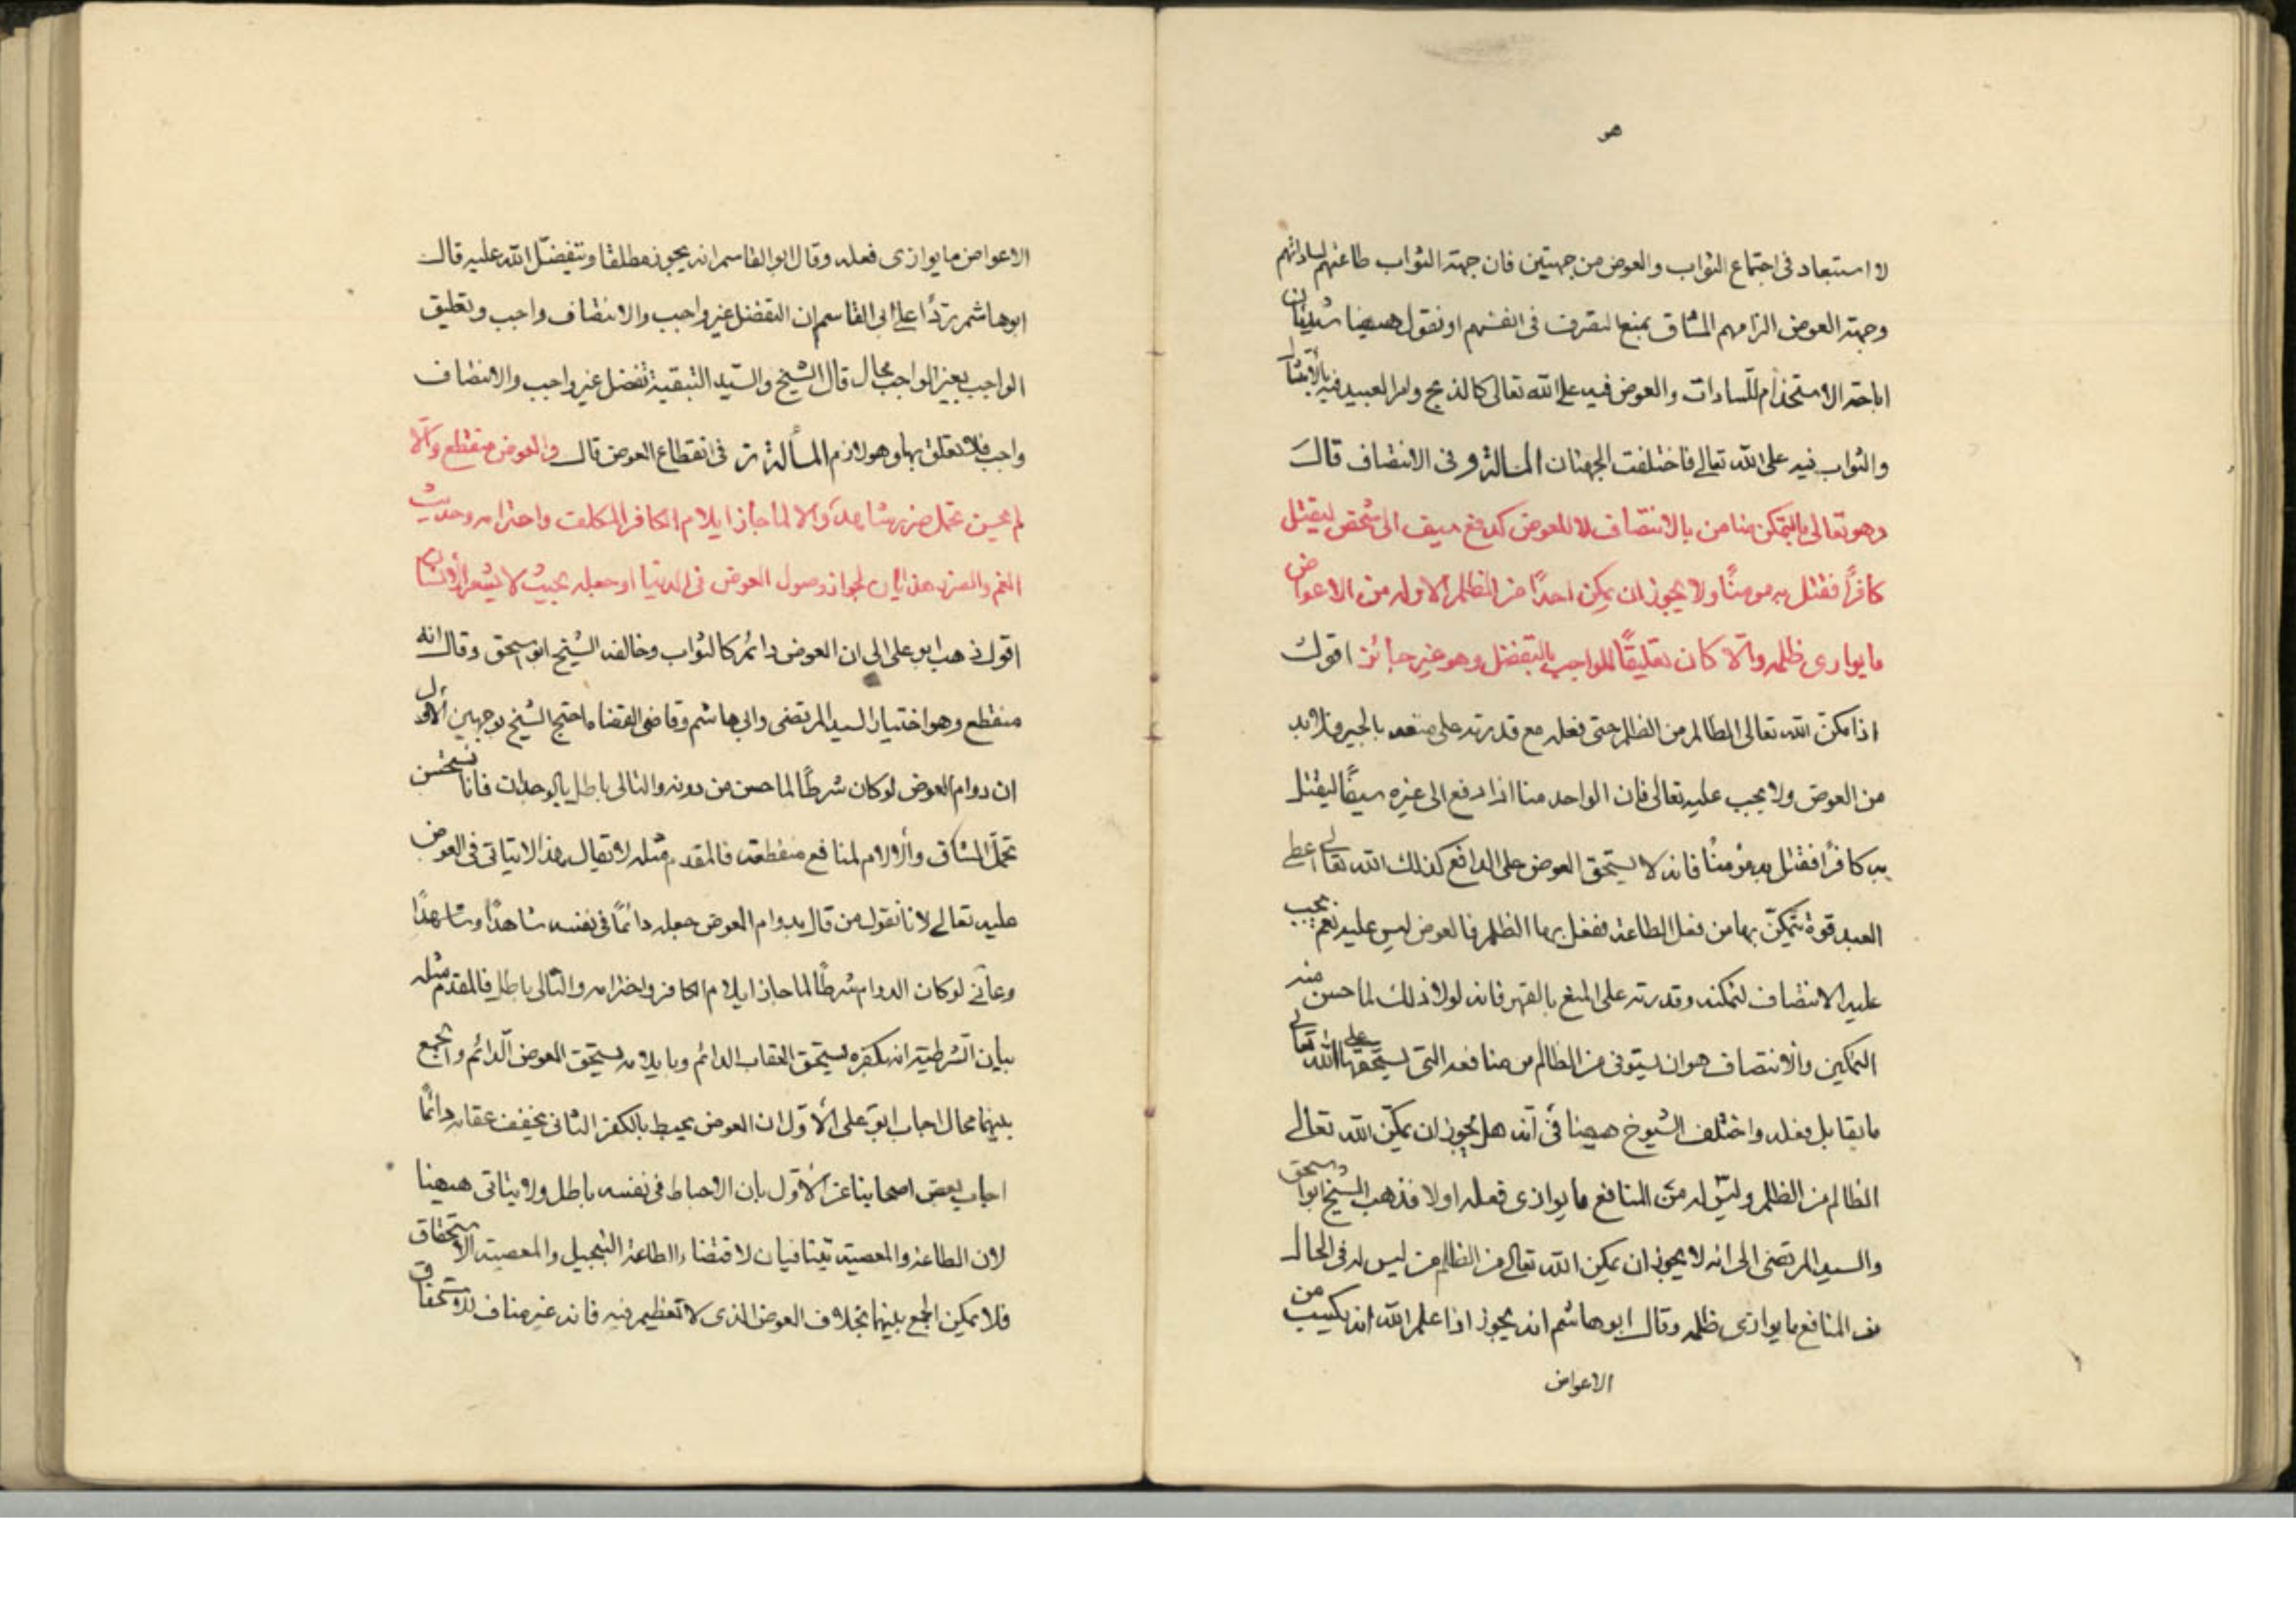 هو
لا استبعاد فى اجتماع الثواب والعوض من جهتين فان جهة الثواب طاعتهم لساداتهم
وجهة العوض الزامهم المشاق بمنع التصرف فى انفسهم او نقول ههينا شيئان
اباحة الاستخدام للسادات والعوض فيه على الله تعالى كالذبح وامر العبيد فيه بالامتثال
والثواب فيه على الله تعالى فاختلفت الجهتان المسالة و فى الانتصاف قال
وهو تعالى بالتمكن ضامن بالانتصاف لا للعوض كدفع سيف الى شخص ليقتل
كافرًا فقتل به مومنًا ولا يجوز ان يمكن احدًا من الظلم الا وله من الاعواض
ما يوازى ظلمه والّا كان تعليقًا للواجب بالتفضل وهو غير جائز اقول
اذا مكن الله تعالى الظالم من الظلم حتى فعله مع قدرته على منعه بالجبر فلا بد
من العوض ولا يجب عليه تعالى فان الواحد منا اذا دفع الى غيره سيفًا ليقتل
به كافرًا فقتل به مؤمنًا فانه لا يستحق العوض على الدافع كذلك الله تعالى اعطى
العبد قوة يتمكّن بها من فعل الطاعة ففعل بها الظلم فالعوض ليس عليه نعم يجب
عليه الانتصاف لتمكنه وقدرته على المنع بالقهر فانه لولا ذلك لما حسن منه
التمكين والانتصاف هو ان يستوفى من الظالم من منافعه التى يستحقها على الله تعالى
ما يقابل فعله واختلف الشيوخ ههينا فى انه هل يجوز ان يمكّن الله تعالى
الظالم من الظلم وليس له من المنافع ما يوازى فعله اولا فذهب الشيخ ابو اسحق
والسيد المرتضى الى انه لا يجوز ان يمكن الله تعالى من الظلم من ليس له فى الحال
من المنافع ما يوازى ظلمه وقال ابو هاشم انه يجوز اذا علم الله انه يكسب من
الاعواض
الاعواض ما يوازى فعله وقال ابو القاسم انه يجوز مطلقا ويتفضّل الله عليه قال
ابو هاشم ردًا على ابى القاسم ان التفضل غير واجب والانتصاف واجب وتعليق
الواجب بغير الواجب محال قال الشيخ والسيّد التبقية تفضل غير واجب والانتصاف
واجب فلا تعلق بها وهو لازم المسألة ز فى انقطاع العوض قال والعوض منقطع والّا
لم يحسن تحمل ضرر شاهدا والا لما جاز ايلام الكافر المكلف واخترامه وحديث
الغم والضرر هذيان لجواز وصول العوض فى الدنيا او جعله بحيث لا يشعر الانسان
اقول ذهب ابو على الى ان العوض دائم كالثواب وخالفه الشيخ ابو اسحق وقال انه
منقطع وهو اختيار السيد المرتضى وابى هاشم وقاضى القضا واحتج الشيخ بوجهين الاول
ان دوام العوض لو كان شرطًا لما حسن من دونه والتالى باطل بالوجدان فانا نستحسن
تحمل المشاق والالام لمنافع منقطعة فالمقدم مثله لا يقال هذا لا يتاتى فى العوض
عليه تعالى لانا نقول من قال بدوام العوض جعله دائمًا فى نفسه شاهدًا وشاهدًا
وغائبا لو كان الدوام شرطًا لما جاز ايلام الكافر واخترامه والتالى باطل فالمقدم مثله
بيان الشرطية انه بكفره يستحق العقاب الدائم وبايلامه يستحق العوض الدائم والجمع
بينهما محال اجاب ابو على الاوّل ان العوض يحبط بالكفر الثانى يخفف عقابه دائمًا
اجاب بعض اصحابنا عن الاوّل بان الاحباط فى نفسه باطل ولا يتاتى ههينا
لان الطاعة والمعصية يتنافيان لاقتضاء الطاعة التبجيل والمعصية الاستحقاق
فلا يمكن الجمع بينهما بخلاف العوض الذى لا تعظيم فيه فانه غير مناف للاستحقاق